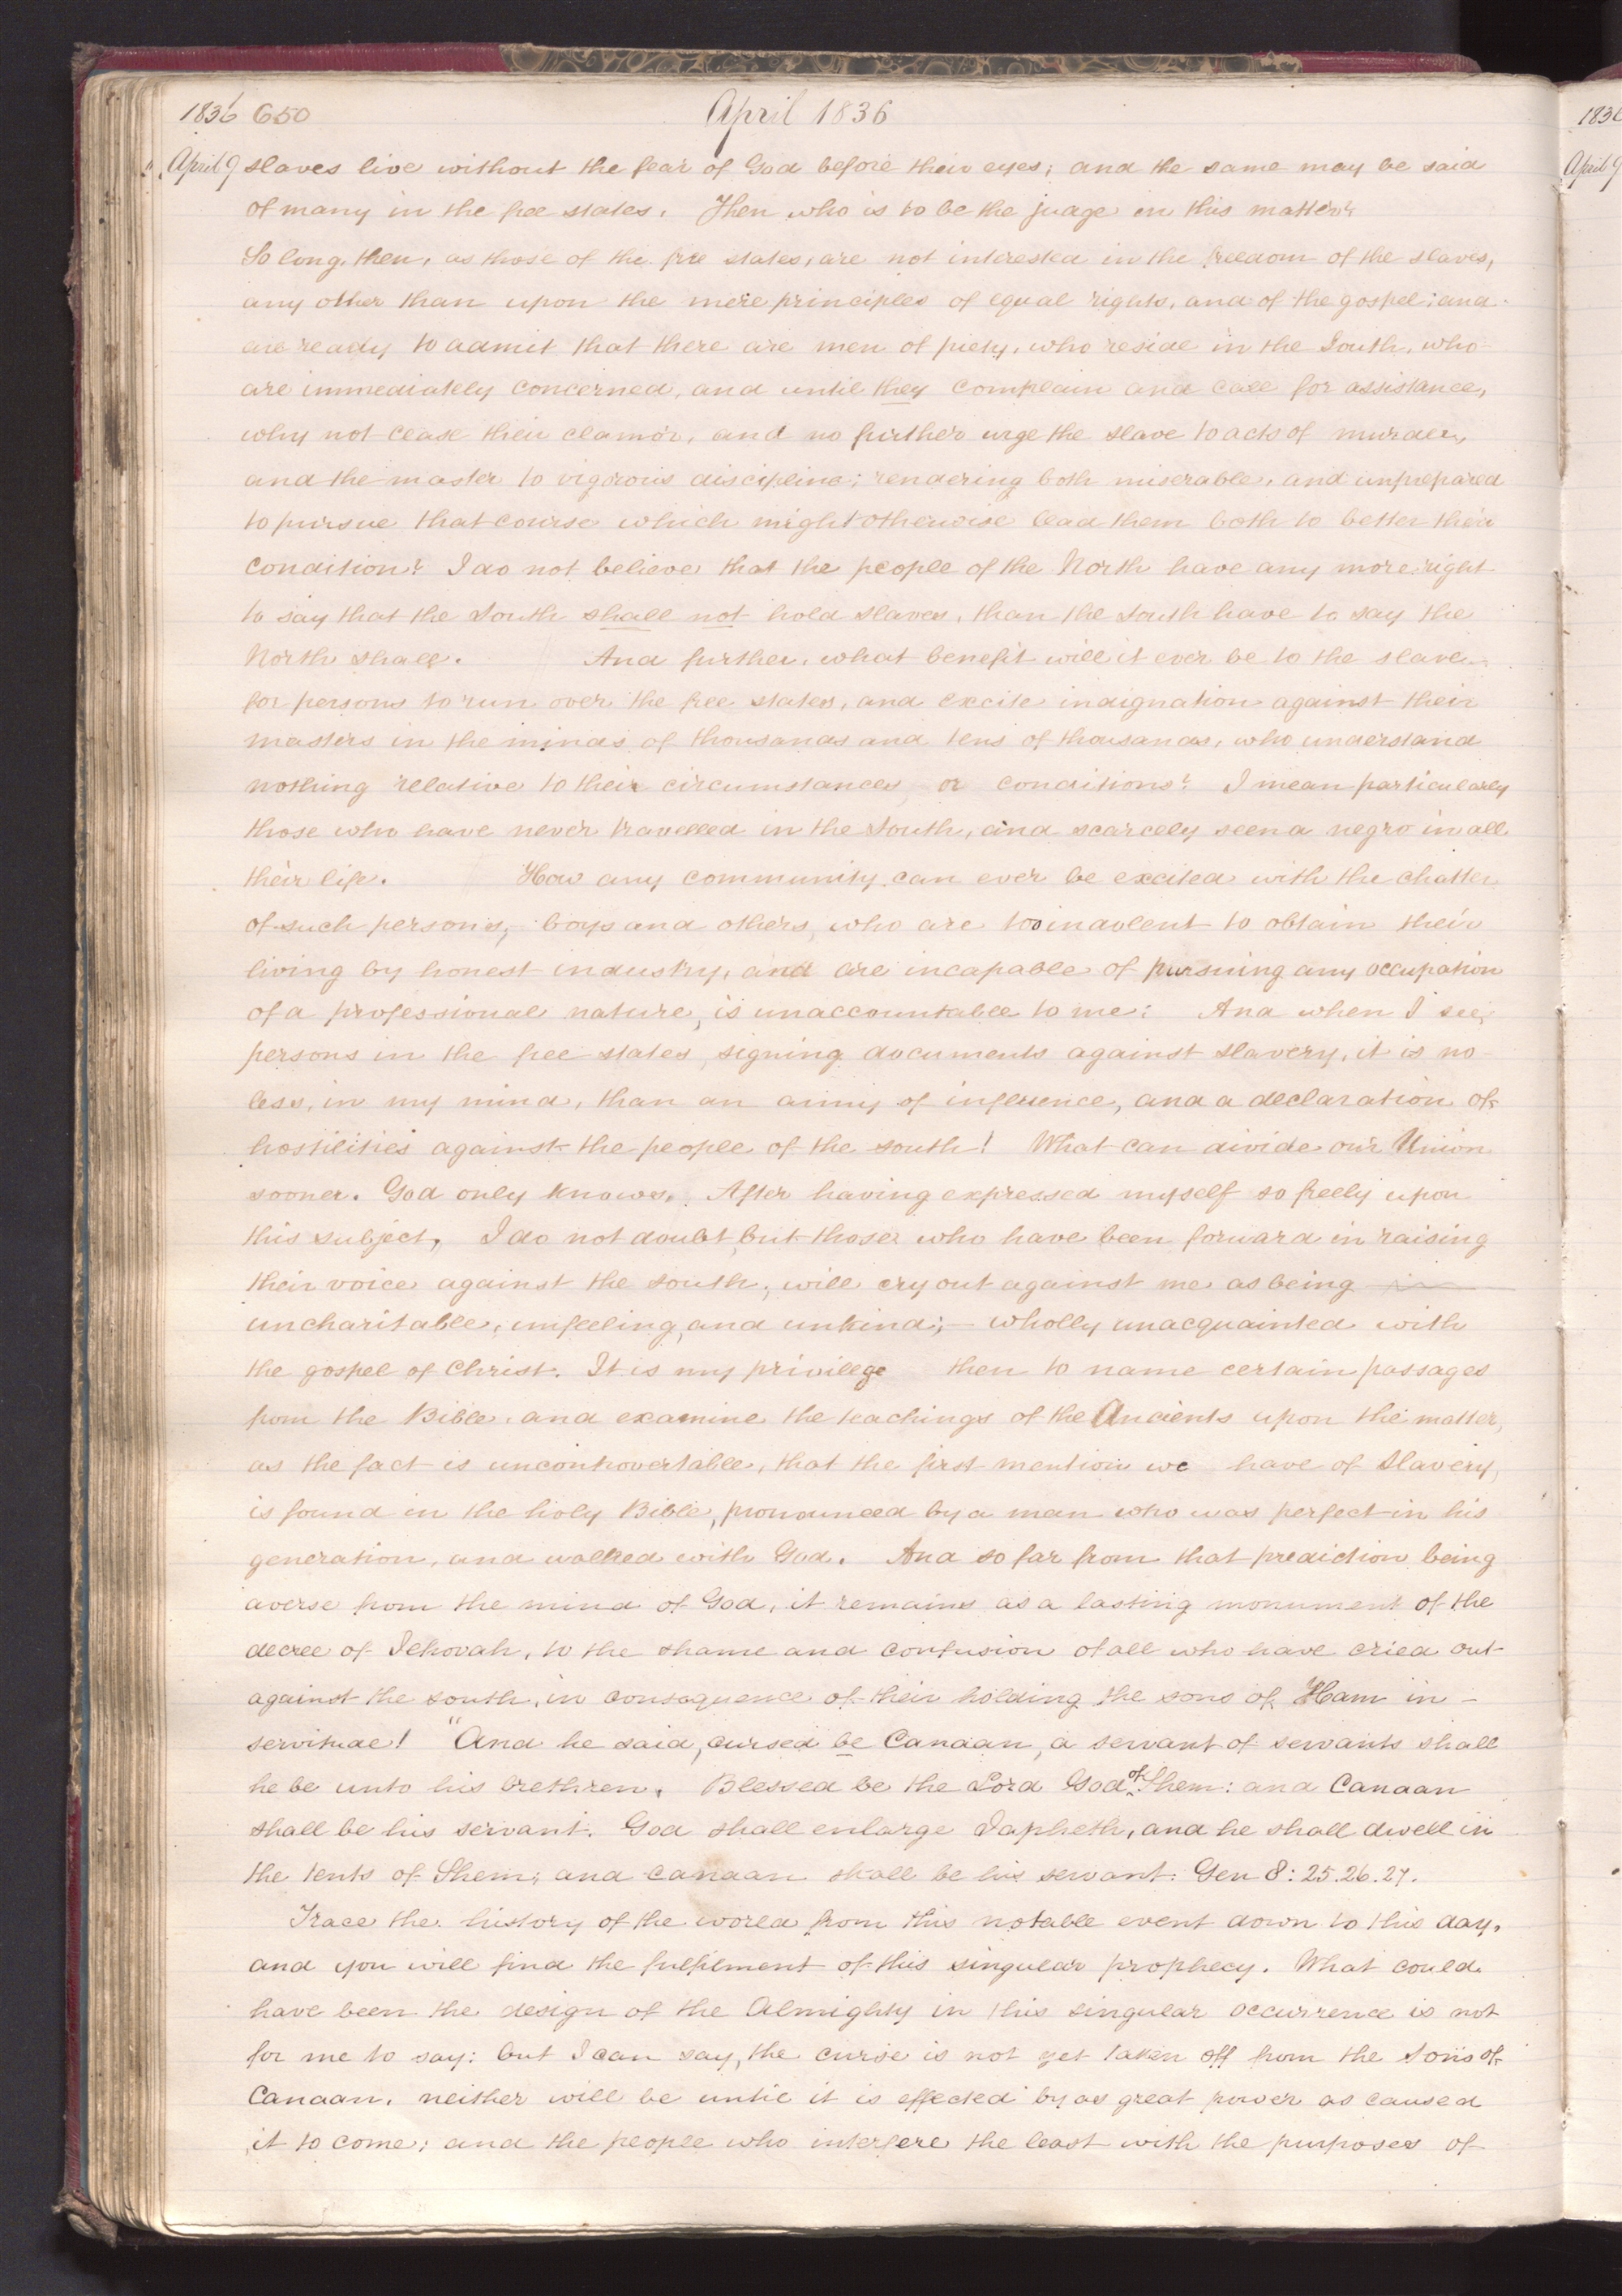 1836 650 April 1836
April 9 slaves live without the fear of God before their eyes; and the same may be said
of many in the free states. Then who is to be the judge in this matter?
So long, then, as those of the free states, are not interested in the freedom of the slaves,
any other than upon the mere principles of equal rights, and of the gospel; and
are ready to admit that there are men of piety, who reside in the South, who
are immediately concerned, and until they complain and call for assistance,
why not cease their clamor, and no further urge the slave to acts of murder,
and the master to vigorous discipline; rendering both miserable, and unprepared
to pursue that course which might otherwise lead them both to better their
condition? I do not believe that the people of the North have any more right
to say that the South shall not hold slaves, than the South have to say the
North shall. And further, what benefit will it ever be to the slave
for persons to run over the free states, and excite indignation against their
masters in the minds of thousands and tens of thousands, who understand
nothing relative to their circumstances or conditions? I mean particularly
those who have never travelled in the South, and scarcely seen a negro in all
their life. How any community can ever be excited with the chatter
of such persons, boys and others, who are too indolent to obtain their
living by honest industry, and are incapable of pursuing any occupation
of a professional nature, is unaccountable to me: And when I see,
persons in the free states, signing documents against slavery, it is no
less, in my mind, than an army of influence, and a declaration of
hostilities against the people of the south! What can divide our Union
sooner. God only knows. After having expressed myself so freely upon
this subject, I do not doubt but those who have been forward in raising
their voice against the south, will cry out against me as being
uncharitable, unfeeling, and unkind; - wholly unacquainted with
the gospel of Christ. It is my privilege then to name certain passages
from the Bible, and examine the teachings of the Ancients upon the matter,
as the fact is uncontrovertable, that the first mention we have of Slavery,
is found in the holy Bible, pronounced by a man who was perfect in his
generation, and walked with God. And so far from that prediction being
averse from the mind of God, it remains as a lasting monument of the
decree of Jehovah, to the shame and confusion of all who have cried out
against the south, in consequence of their holding the sons of Ham in -
servitude! "And he said, cursed be Canaan, a servant of servants shall
he be unto his brethren. Blessed be the Lord God of Shem: and Canaan
shall be his servant. God shall enlarge Japheth, and he shall dwell in
the tents of Shem; and canaan shall be his servant. Gen 8: 25.26.27.
Trace the history of the world from this notable event down to this day,
and you will find the fulfilment of this singular prophecy. What could
have been the design of the Almighty in this singular occurrence is not
for me to say: but I can say, the curse is not yet taken off from the Sons of
Canaan, neither will be until it is effected by as great power as caused
it to come; and the people who interfere the least with the purposes of
1836
April 9